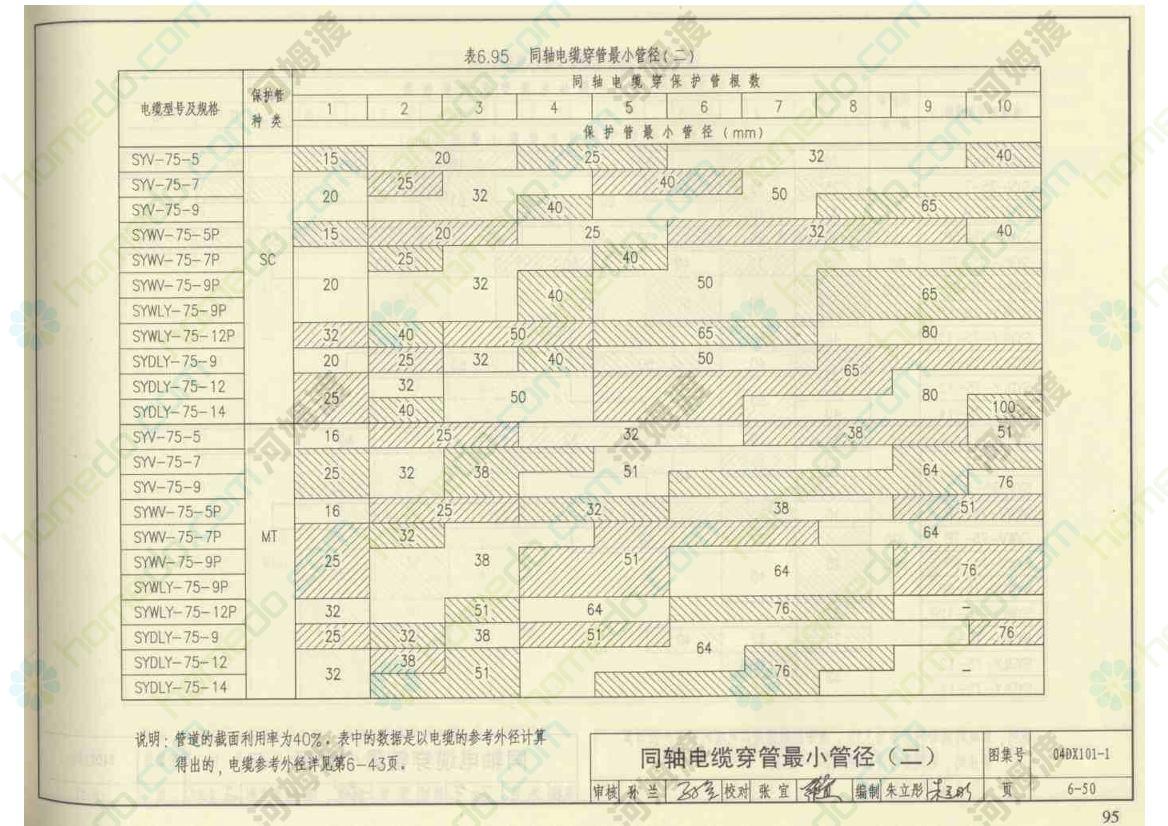 表6.95 同轴电缆穿管最小管径(二)
电缆型号及规格 保护管种类 同轴电缆穿保护管根数
1 2 3 4 5 6 7 8 9 10
保护管最小管径(mm)
SYV-75-5 15 20 25 32 40
SYV-75-7 25 40
20 32 50
SYV-75-9 40 65
SYWV-75-5P 15 20 25 32 40
SYWV-75-7P SC 25 40
SYWV-75-9P 20 32 50
40 65
SYWLY-75-9P
SYWLY-75-12P 32 40 50 65 80
SYDLY-75-9 20 25 32 40 50
65
SYDLY-75-12 32
25 50 80
SYDLY-75-14 40 100
SYV-75-5 16 25 32 38 51
SYV-75-7
25 32 38 51 64
SYV-75-9 76
SYWV-75-5P 16 25 32 38 51
SYWV-75-7P MT 32 64
SYWV-75-9P 25 38 51 64 76
SYWLY-75-9P
SYWLY-75-12P 32 51 64 76 -
SYDLY-75-9 25 32 38 51 76
64
SYDLY-75-12 38
32 51 76 -
SYDLY-75-14
说明:管道的截面利用率为40%。表中的数据是以电缆的参考外径计算
得出的,电缆参考外径详见第6-43页。
同轴电缆穿管最小管径(二) 图集号 04DX101-1
审核 孙兰 校对 张宜 编制 朱立彤 页 6-50
95
河姆渡
homedo.com